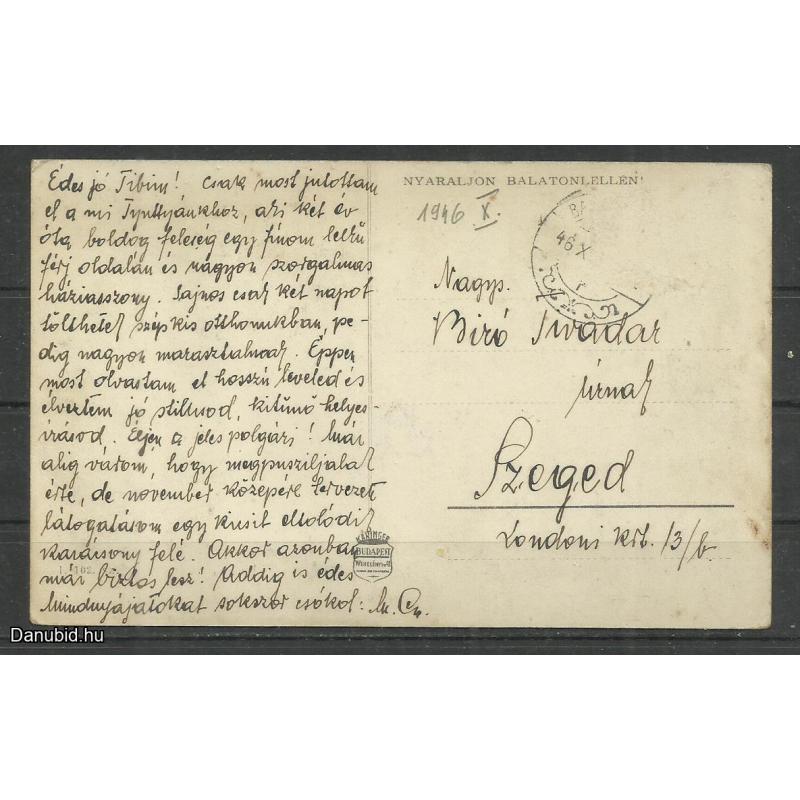 Édes jó Tibim! Csak most jutottam
el a mi
, aki két év
óta boldog feleség egy finom lelkű
férj oldalán és nagyon szorgalmas
háziasszony. Sajnos csak két napot
tölthetek szép kis otthonukban, pe-
dig nagyon marasztalnak. Éppen
most olvastam el hosszú leveled és
élveztem jó stílusod, kitűnő helyes-
írásod. Éljen a jeles polgári! Már
alig várom, hogy megpusziljalak
érte, de november közepére tervezett
látogatásom egy kicsit eltolódik
karácsony felé. Akkor azonban
már biztos lesz! Addig is édes
Mindnyájatokat sokszor csókol:
NYARALJON BALATONLELLÉN!
1946 X.
46 X
Nagys.
Biró Tivadar
úrnak
Szeged
Londoni krt. 13/b.
BUDAPEST
Danubid.hu